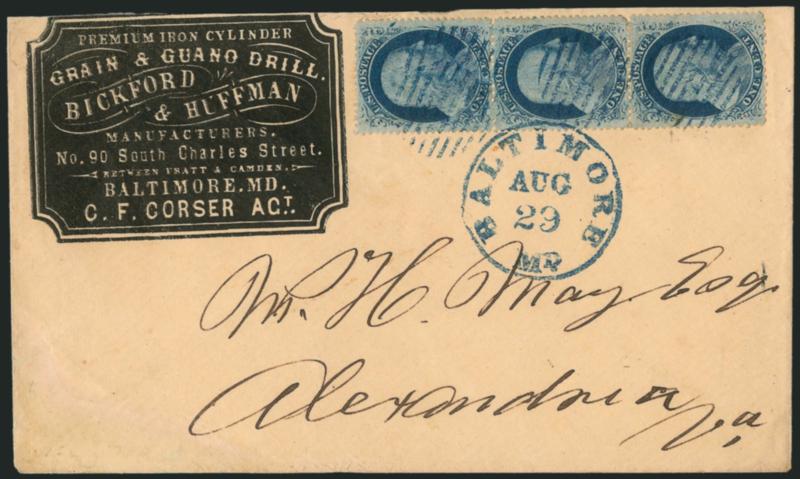 PREMIUM IRON CYLINDER
GRAIN & GUANO DRILL.
BICKFORD
& HUFFMAN
MANUFACTURERS.
No. 90 South Charles Street.
BETWEEN PRATT & CAMDEN.
BALTIMORE. MD.
C. F. CORSER AGT.
U.S. POSTAGE
ONE CENT
U.S. POSTAGE
ONE CENT
U.S. POSTAGE
ONE CENT
BALTIMORE
AUG
29
MD
W. H. May Esq.
Alexandria
Va